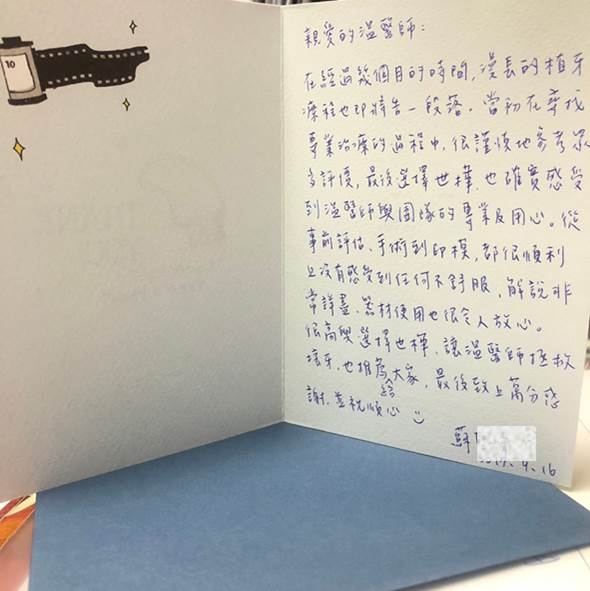 10
親愛的溫醫師：
在經過幾個月的時間，漫長的植牙
療程也即將告一段落。當初在尋找
專業治療的過程中，很謹慎地參考眾
多評價，最後選擇世樺，也確實感受
到溫醫師與團隊的專業及用心。從
事前評估、手術到印模，都很順利
且沒有感受到任何不舒服，解說非
常詳盡、器材使用也很令人放心。
很高興選擇世樺，讓溫醫師拯救
壞牙，也推薦給大家，最後致上萬分感
謝，並祝順心
蘇
9.16